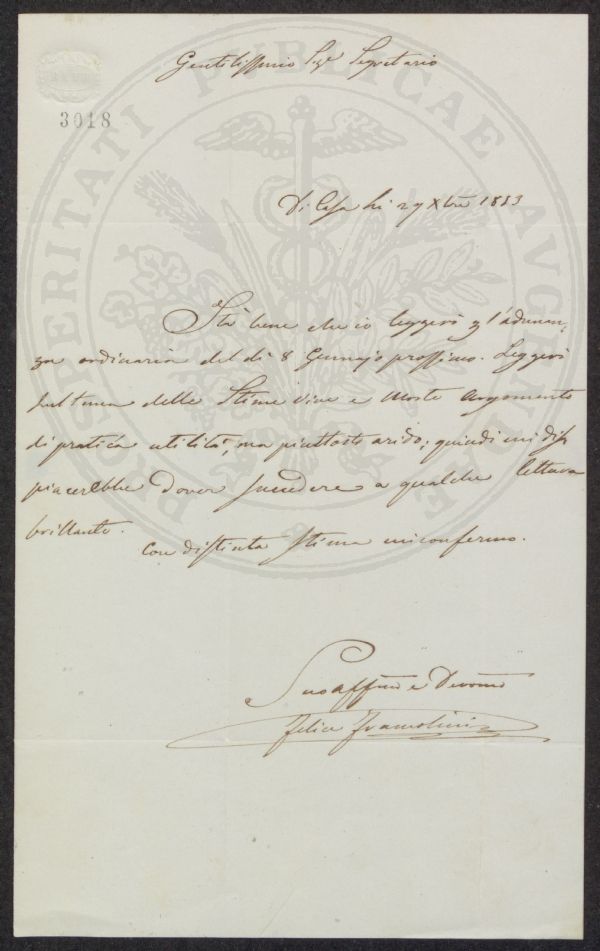 PROSPERITATI PUBLICAE AUGENDAE
3018
Gentilissimo Sigr Segretario
Di Casa li 29 Xbre 1853
Stà bene che io leggerò p l'adunan,
za ordinaria del dì 8 Gennajo prossimo. Leggerò
sul tema delle Stime vive e morte argomento
di pratica utilità, ma piuttosto arido; quindi mi dis
piacerebbe dover succedere a qualche lettura
brillante.
Con distinta stima mi confermo.
Suo affmo e Devomo
Felice Francolini